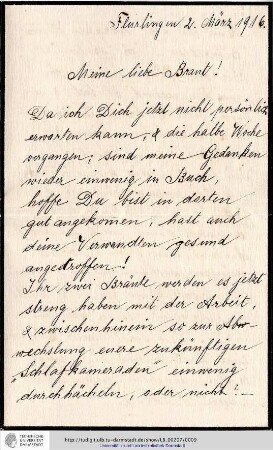 Flurlingen 2. März 1916.
Meine liebe Braut!
Da ich Dich jetzt nicht persönlich
erwarten kann, & die halbe Woche
vergangen, sind meine Gedanken
wieder einwenig in Buch,
hoffe Du bist in derten
gut angekomen, hast auch
deine Verwandten gesund
angedroffen!
Ihr zwei Bräute werden es jetzt
streng haben mit der Arbeit,
& zwischenhinein so zur Ab-
wechslung euere zukünftigen
"Schlafkameraden" einwenig
durchhächeln, oder nicht!—
TECHNISCHE
UNIVERSITÄT
DARMSTADT